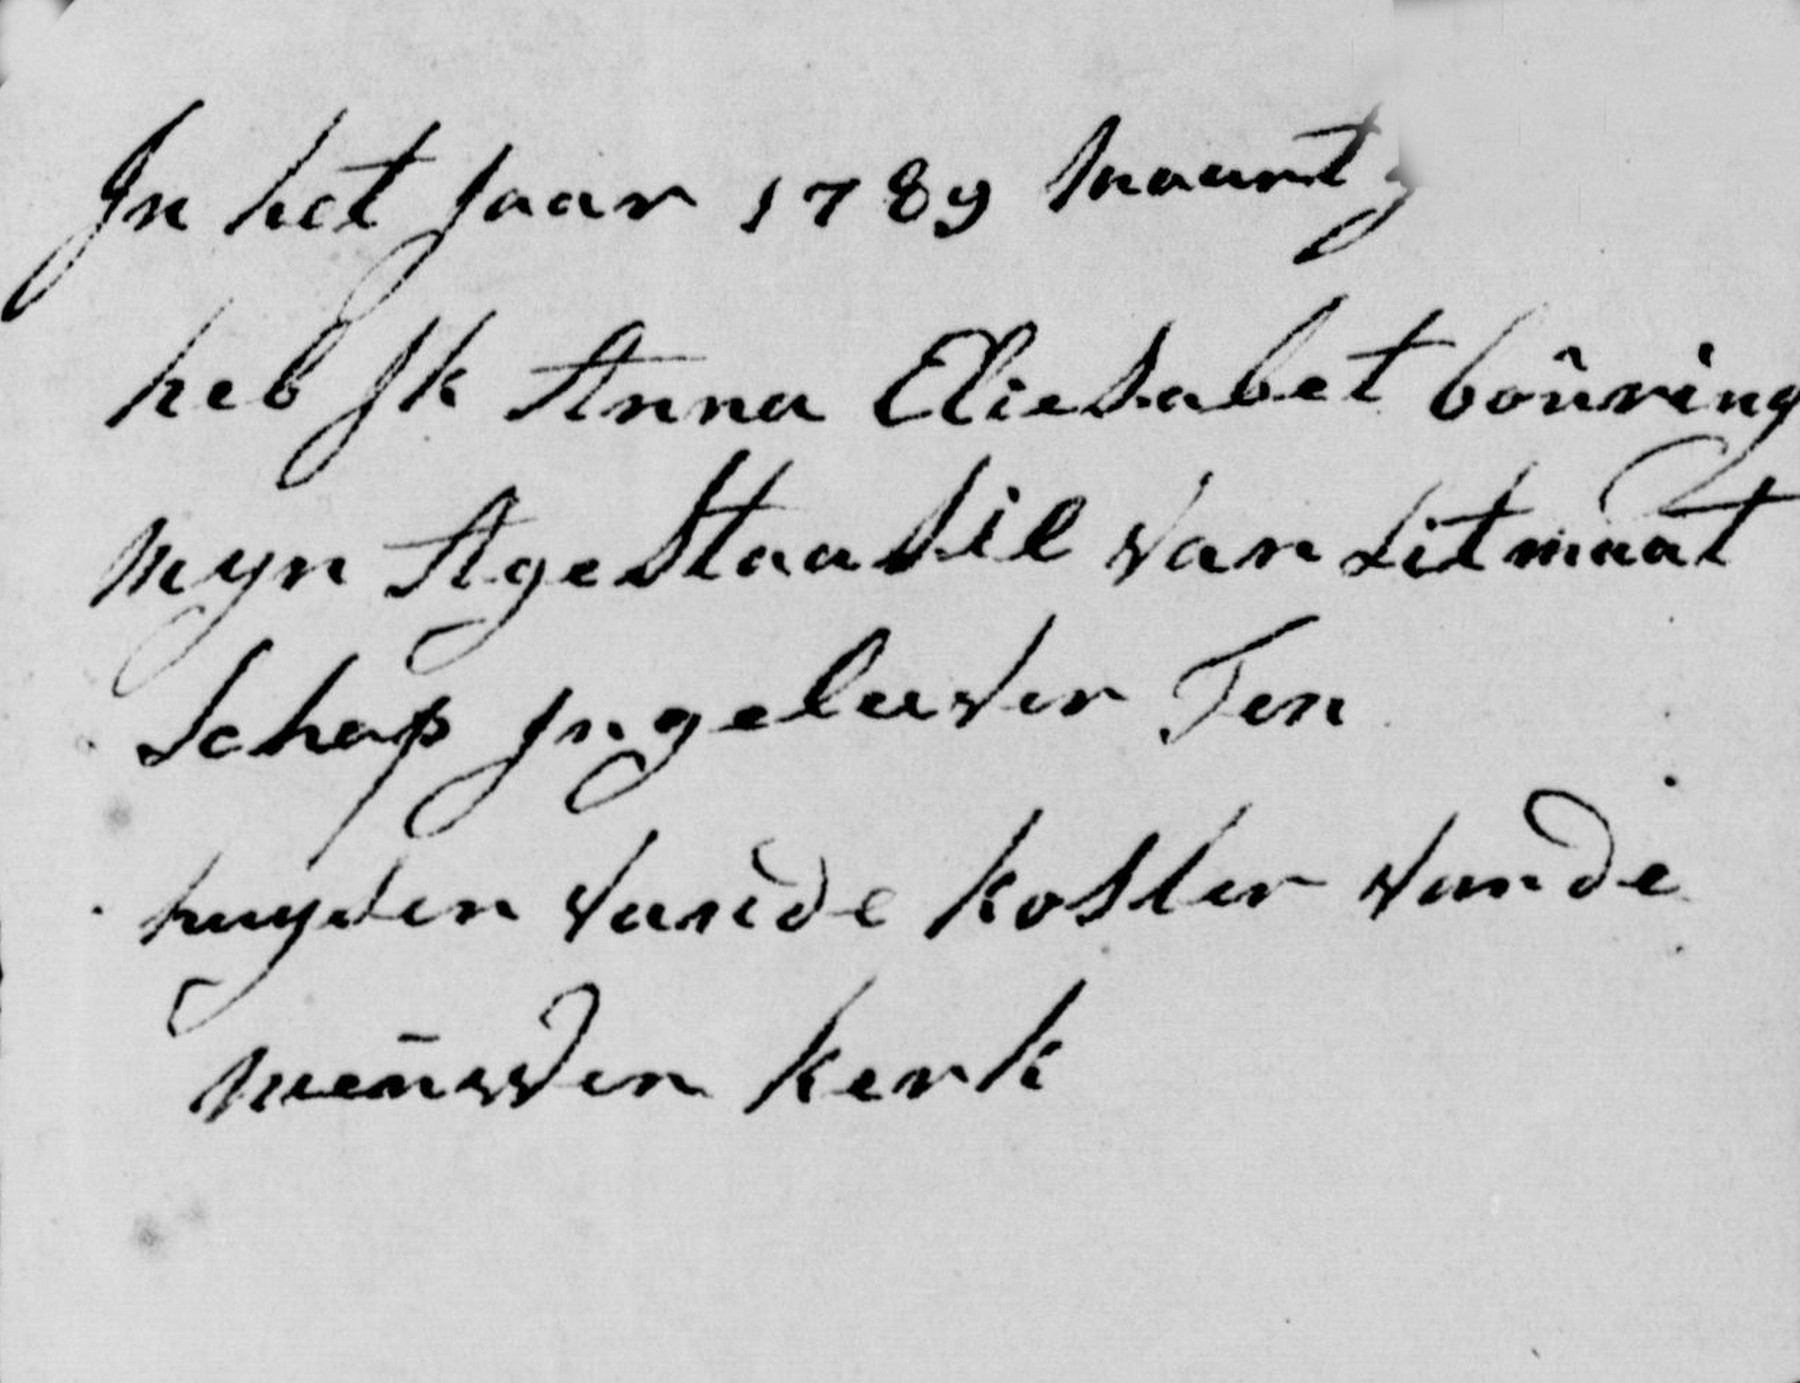 In het Jaar 1789 maart
heb Ik Anna Eliesabet boûring
myn Agestaasie van Litmaat
Schap Ingeleever Ten
huysen van de koster van de
nieuwen kerk